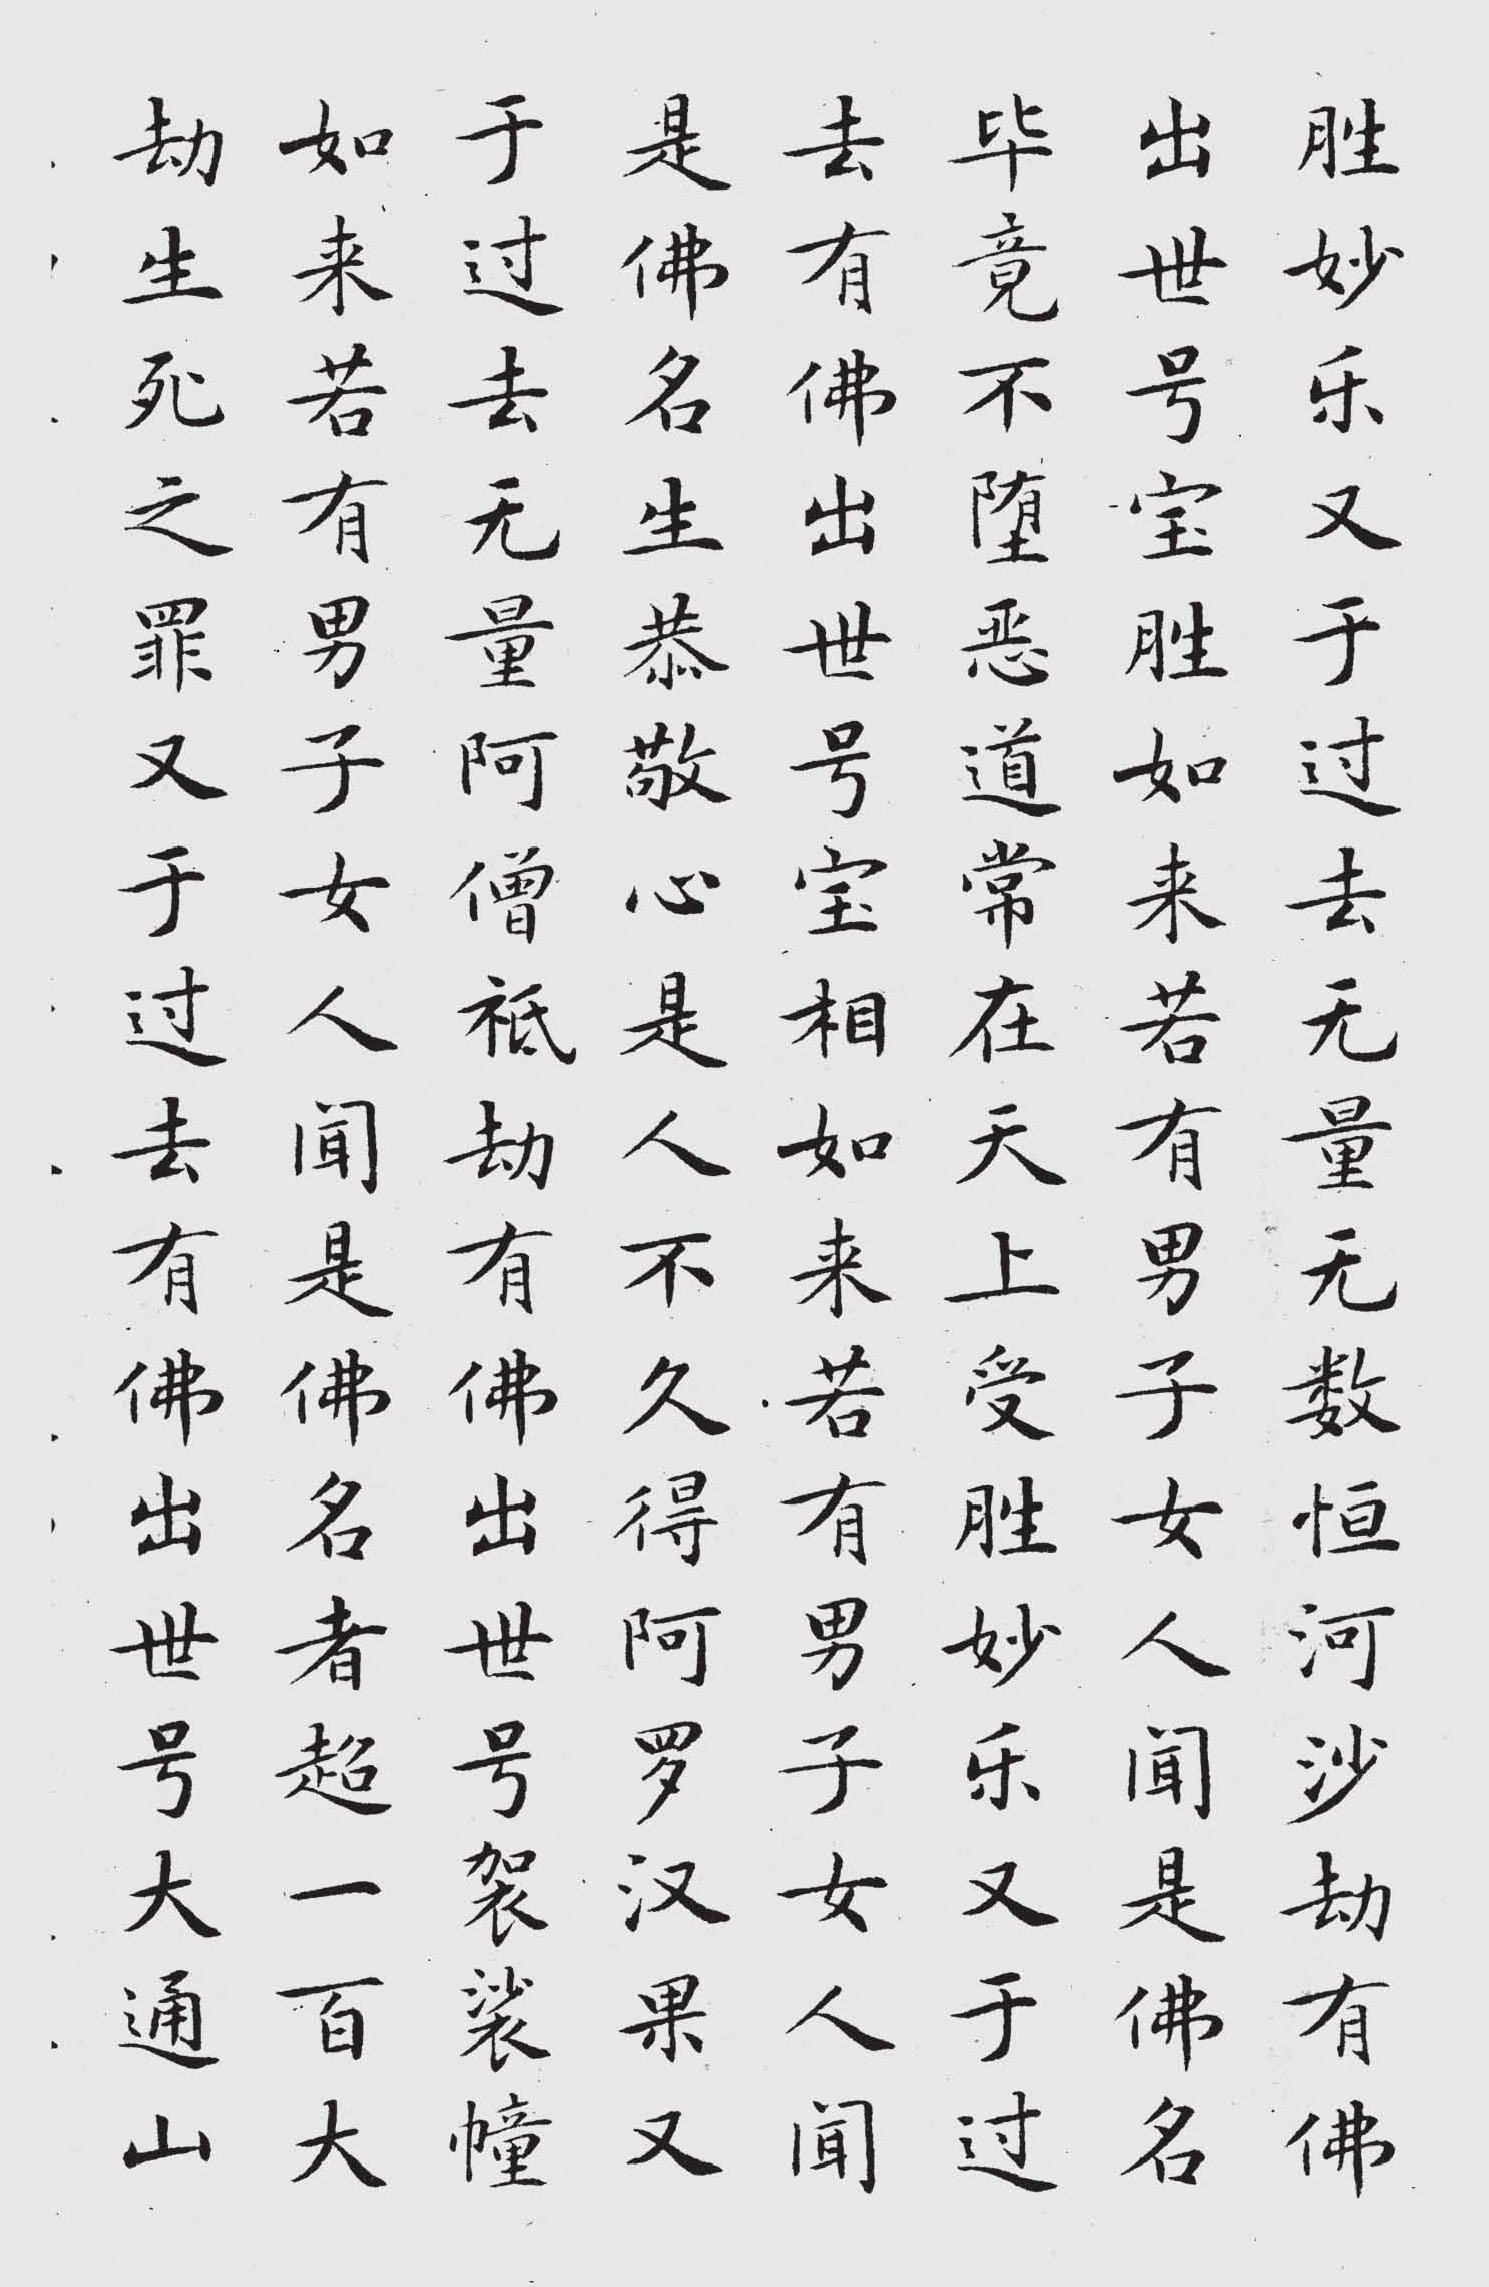 胜妙乐又于过去无量无数恒河沙劫有佛
出世号宝胜如来若有男子女人闻是佛名
毕竟不堕恶道常在天上受胜妙乐又于过
去有佛出世号宝相如来若有男子女人闻
是佛名生恭敬心是人不久得阿罗汉果又
于过去无量阿僧祇劫有佛出世号袈裟幢
如来若有男子女人闻是佛名者超一百大
劫生死之罪又于过去有佛出世号大通山